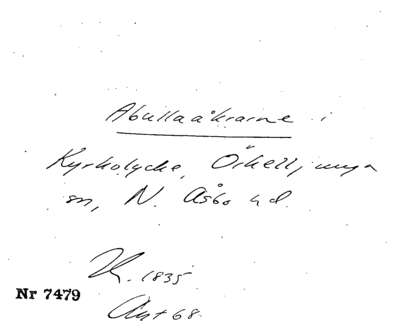 Abullaåkrarne i
Kyrkolycke, Örkelljunga
sn, N. Åsbo hd.
K. 1835
Nr 7479
Akt 68.